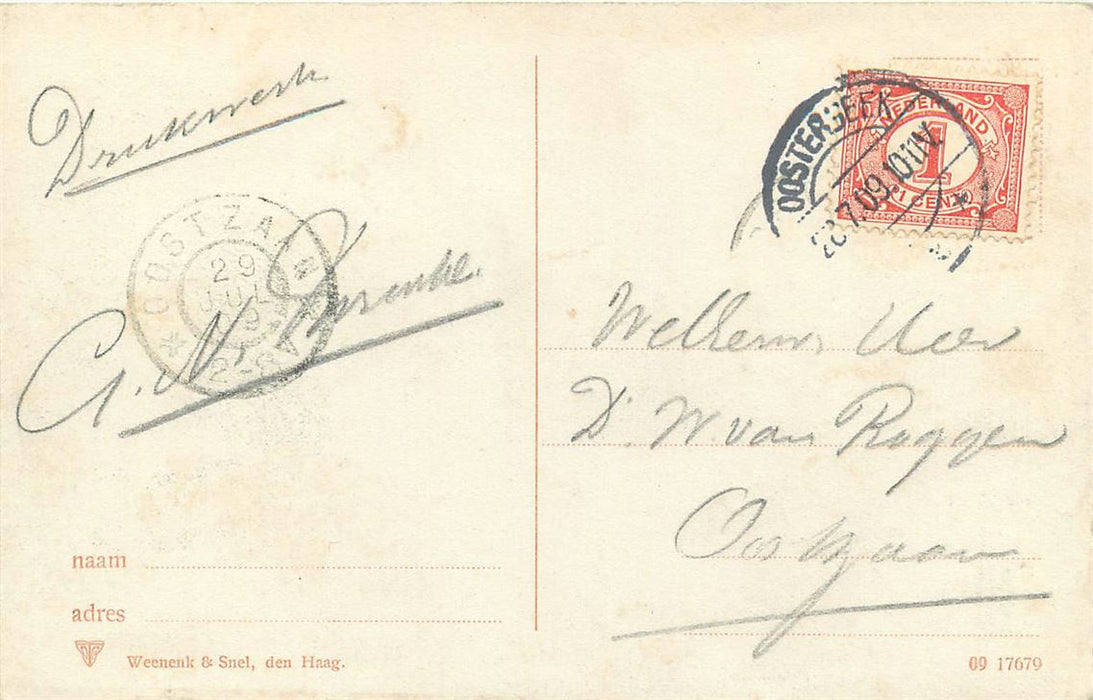 Drukwerk
OOSTZAAN
29
JUL
G. N.
naam
adres
Weenenk & Snel, den Haag.
OOSTERBEEK
28.7.09.10-11V.
NEDERLAND
1
1 CENT
Heer
Dr. W. van Roggen
Oostzaan
09 17679